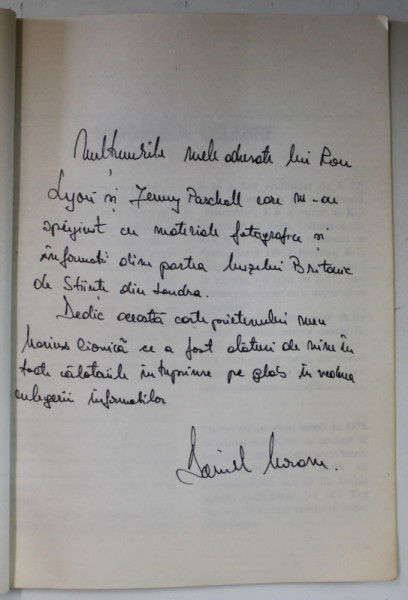 Mulțumirile mele adresate lui Ron
Lyon și Jenny Paschall care m-au
sprijinit cu materiale fotografice și
informații din partea Muzeului Britanic
de Științe din Londra.
Dedic această carte prietenului meu
Marius Cionică ce a fost alături de mine în
toate călătoriile întreprinse pe glob în vederea
culegerii informațiilor
Daniel